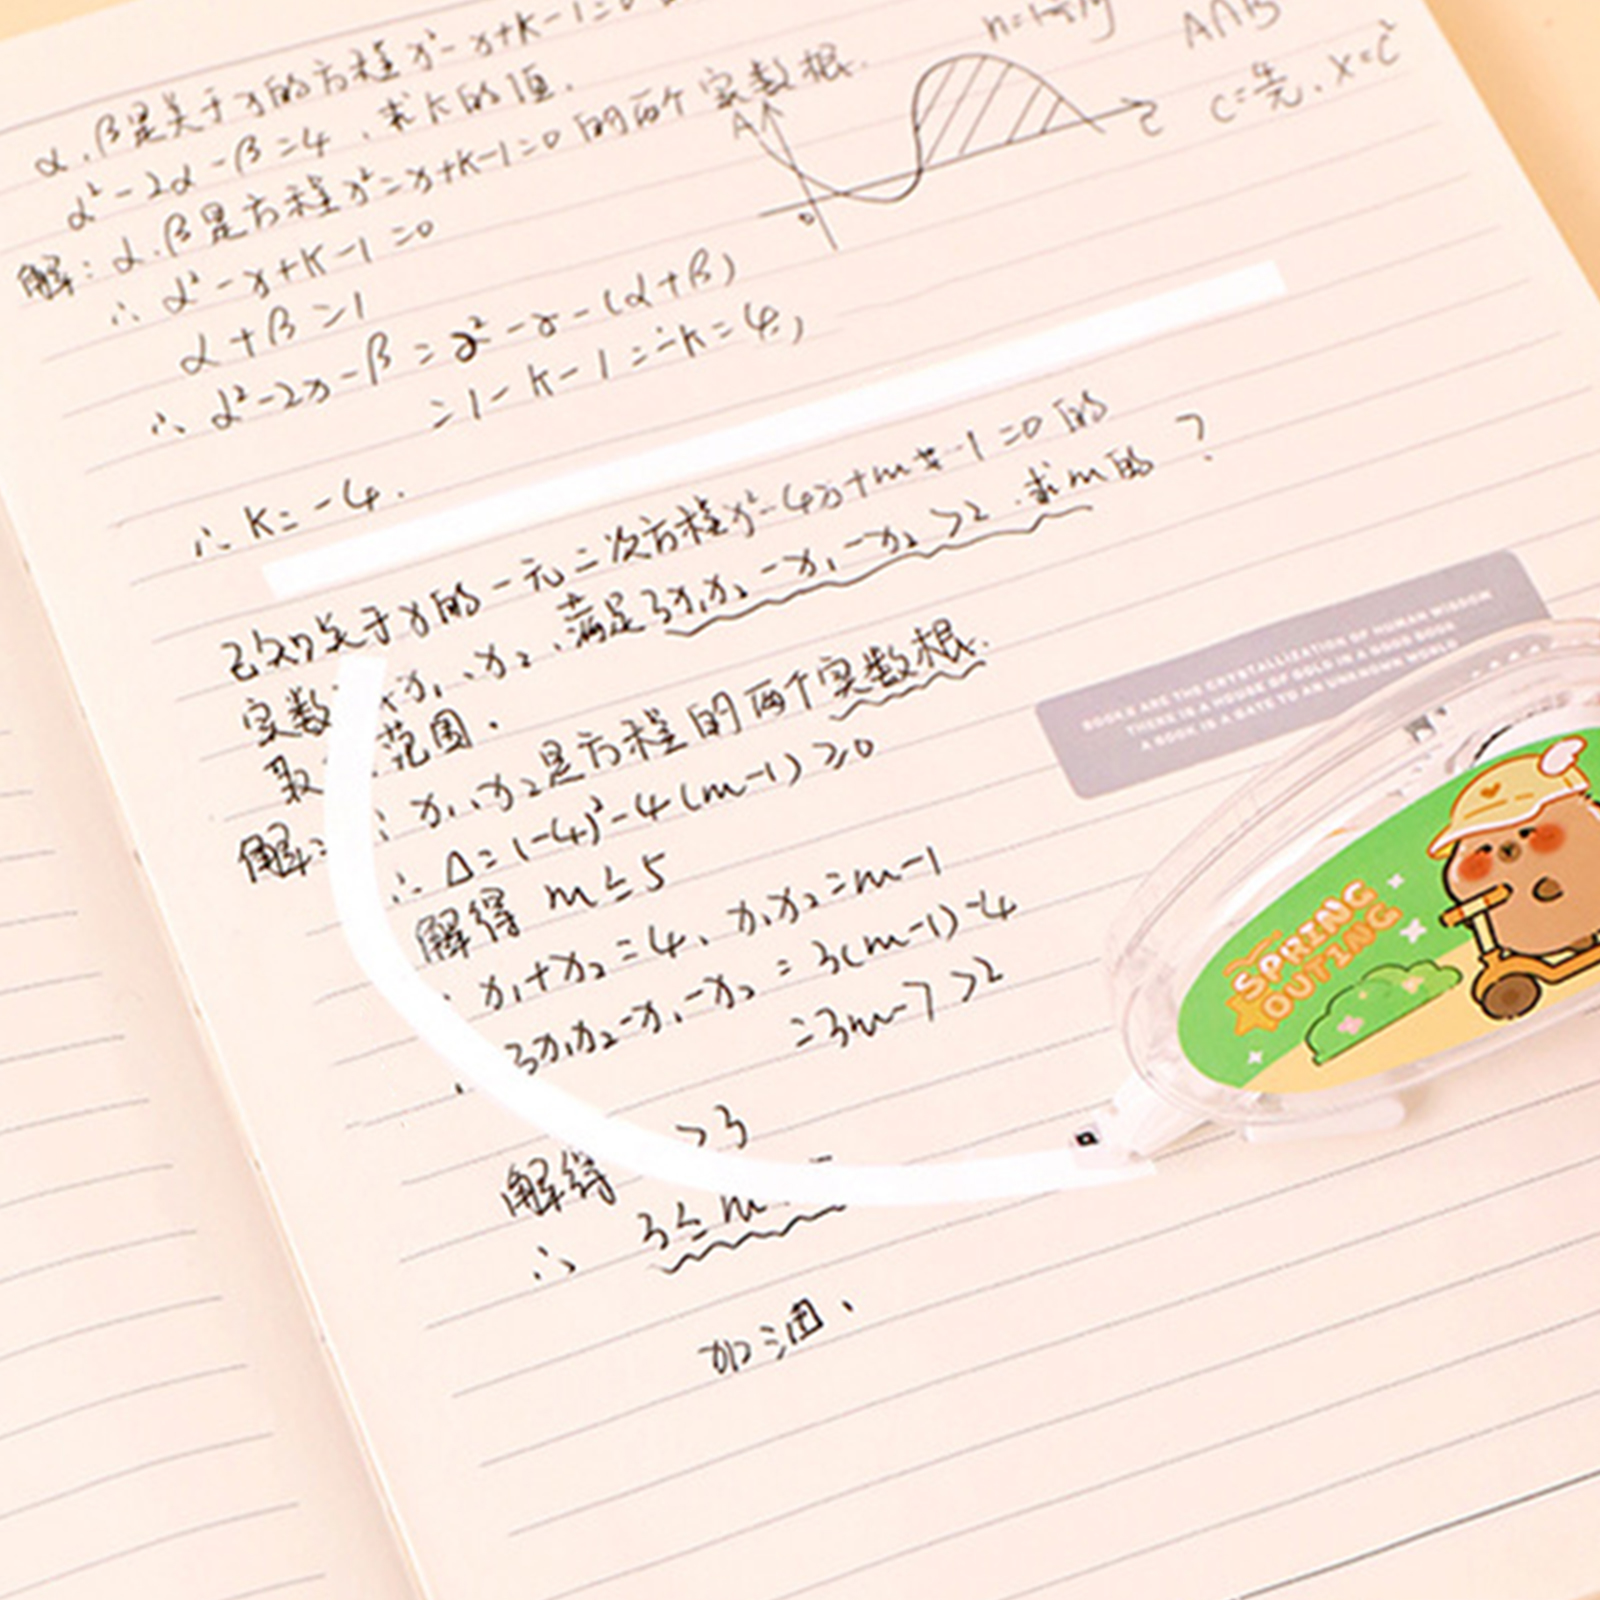 α、β是关于x的方程x²-x+k-1=0
α²-2α-β=4,求k的值.
解:α、β是方程x²=x+k-1=0的两个实数根.
∴ α²-x+k-1=0
α+β=1
∴ α²-2x-β=α²-x-(α+β)
=1-k-1=-k=4,
∴ k=-4.
A
0
A∩B
已知关于x的一元二次方程x²-4x+m-1=0的
实数 x₁、x₂,满足3x₁x₂-x₁-x₂>2.求m的?
取 范围.
解: x₁、x₂是方程的两个实数根.
∴ Δ=(-4)²-4(m-1)≥0
解得 m≤5
x₁+x₂=4、x₁x₂=m-1
3x₁x₂-x₁-x₂=3(m-1)-4
=3m-7>2
解得 >3
∴ 3≤m
加油、
BOOKS ARE THE CRYSTALLIZATION OF HUMAN WISDOM
THERE IS A HOUSE OF GOLD IN A GOOD BOOK
A BOOK IS A GATE TO AN UNKNOWN WORLD
SPRING
OUTING